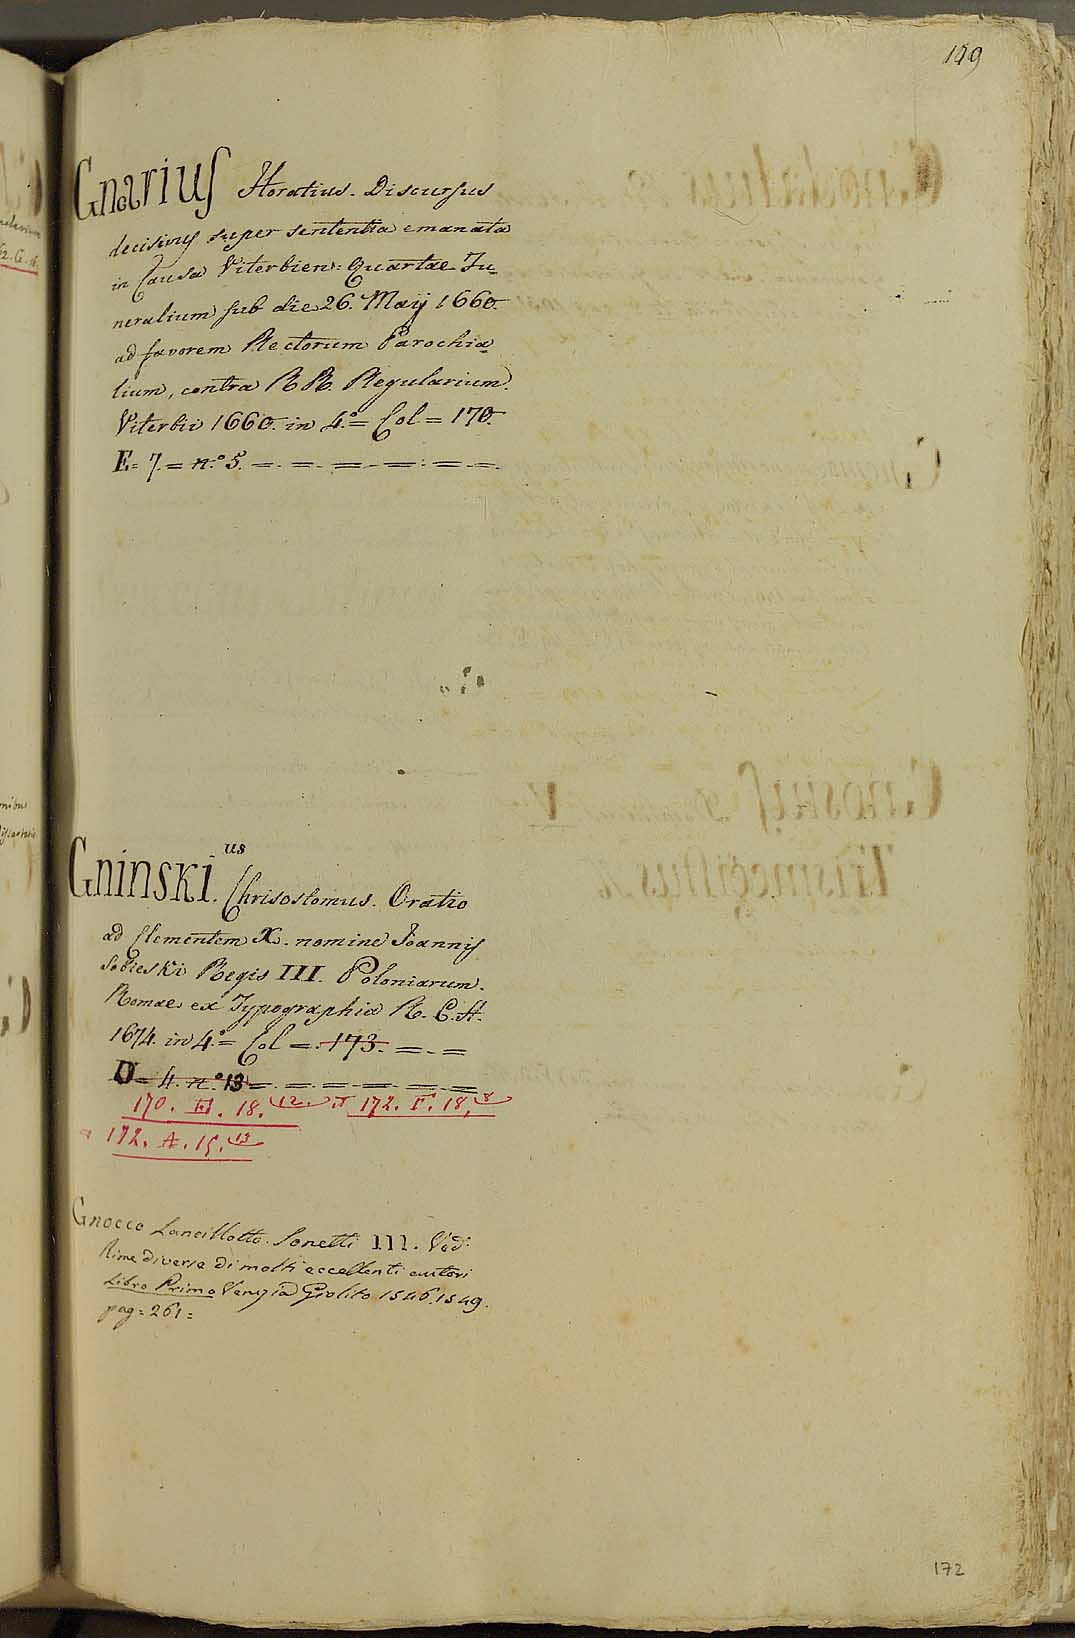 159
Gnarius Horatius. Discursus
decisivus super sententia emanata
in Causa Viterbien: Quartae Fu=
neralium sub die 26. Maij 1660.
ad favorem Rectorum Parochia=
lium, contra R R. Regularium.
Viterbii 1660. in 4.º = Col = 170.
E = 7. = n.º 5. = . = . = . = . = .
us
Gninski. Chrisostomus. Oratio
ad Clementem X. nomine Joannis
Sobieski Regis III. Poloniarum.
Romae ex Typographia R. C. A.
1674. in 4.º = Col = . 173. = . =
D = 4. n.º 13 = . = . = . = . =
170. E. 18. 12. et 172. F. 18. 8
172. A. 15. 13
Gnocco Lancillotto. Sonetti III. Ved:
Rime diverse di molti eccellenti autori
Libro Primo Venezia Giolito 1546. 1549.
pag = 261 =
172